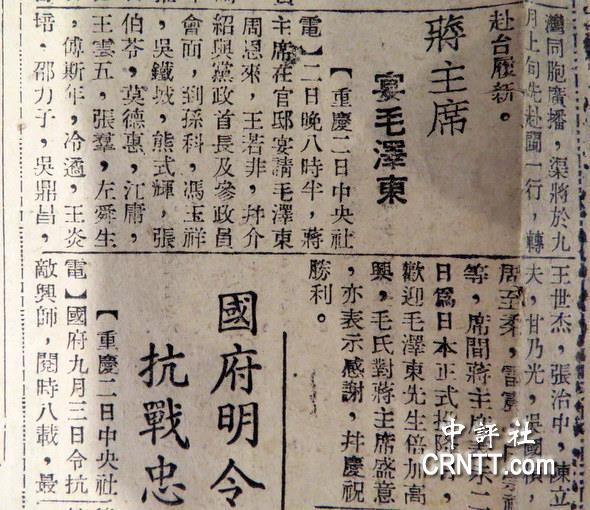 灣同胞廣播，渠將於九
月上旬先赴閩一行，轉
赴台履新。
蔣主席
宴毛澤東
【重慶二日中央社
電】二日晚八時半，蔣
主席在官邸宴請毛澤東
周恩來，王若非，幷介
紹與黨政首長及參政員
會面，到孫科，馮玉祥
，吳鐵城，熊式輝，張
伯苓，莫德惠，江庸，
王雲五，張羣，左舜生
，傅斯年，冷遹，王炎
培，邵力子，吳鼎昌，
王世杰，張治中，陳立
夫，甘乃光，吳國楨，
周至柔，雷震
等，席間蔣主席表示二
日爲日本正式投降日，
歡迎毛澤東先生倍加高
興，毛氏對蔣主席盛意
，亦表示感謝，幷慶祝
勝利。
國府明令
抗戰忠
【重慶二日中央社
電】國府九月三日令抗
敵興師，閱時八載，最
中評社
CRNTT.com